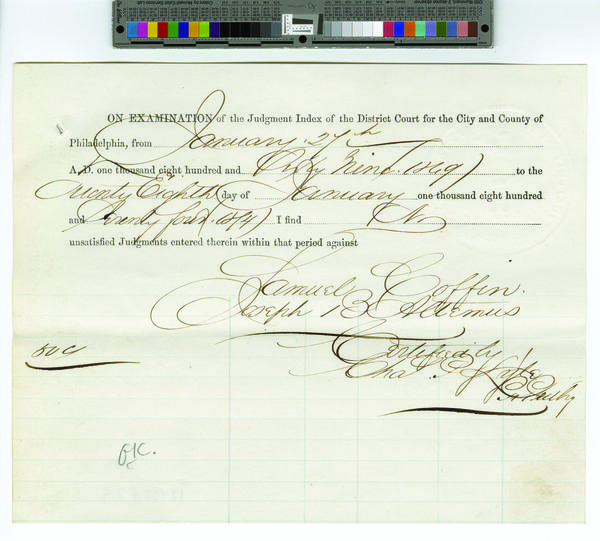 ON EXAMINATION of the Judgment Index of the District Court for the City and County of
Philadelphia, from January 27th
A. D. one thousand eight hundred and Sixty Nine (1869) to the
Twenty Eighth day of January one thousand eight hundred
and Seventy four (1874) I find No
unsatisfied Judgments entered therein within that period against
Samuel Coffin.
Joseph B Altemus
Certified by
Chas
80c
OK.